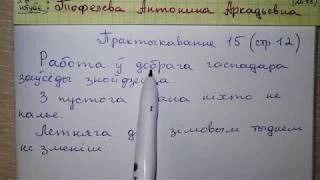 Тофелева Антонина Аркадьевна
Практыкаванне 15 (стр 12)
Работа ў добрага гаспадара
заўсёды знойдзе
З пустога ніхто не
налье.
Летняга зімовым тыднем
не зменіш.